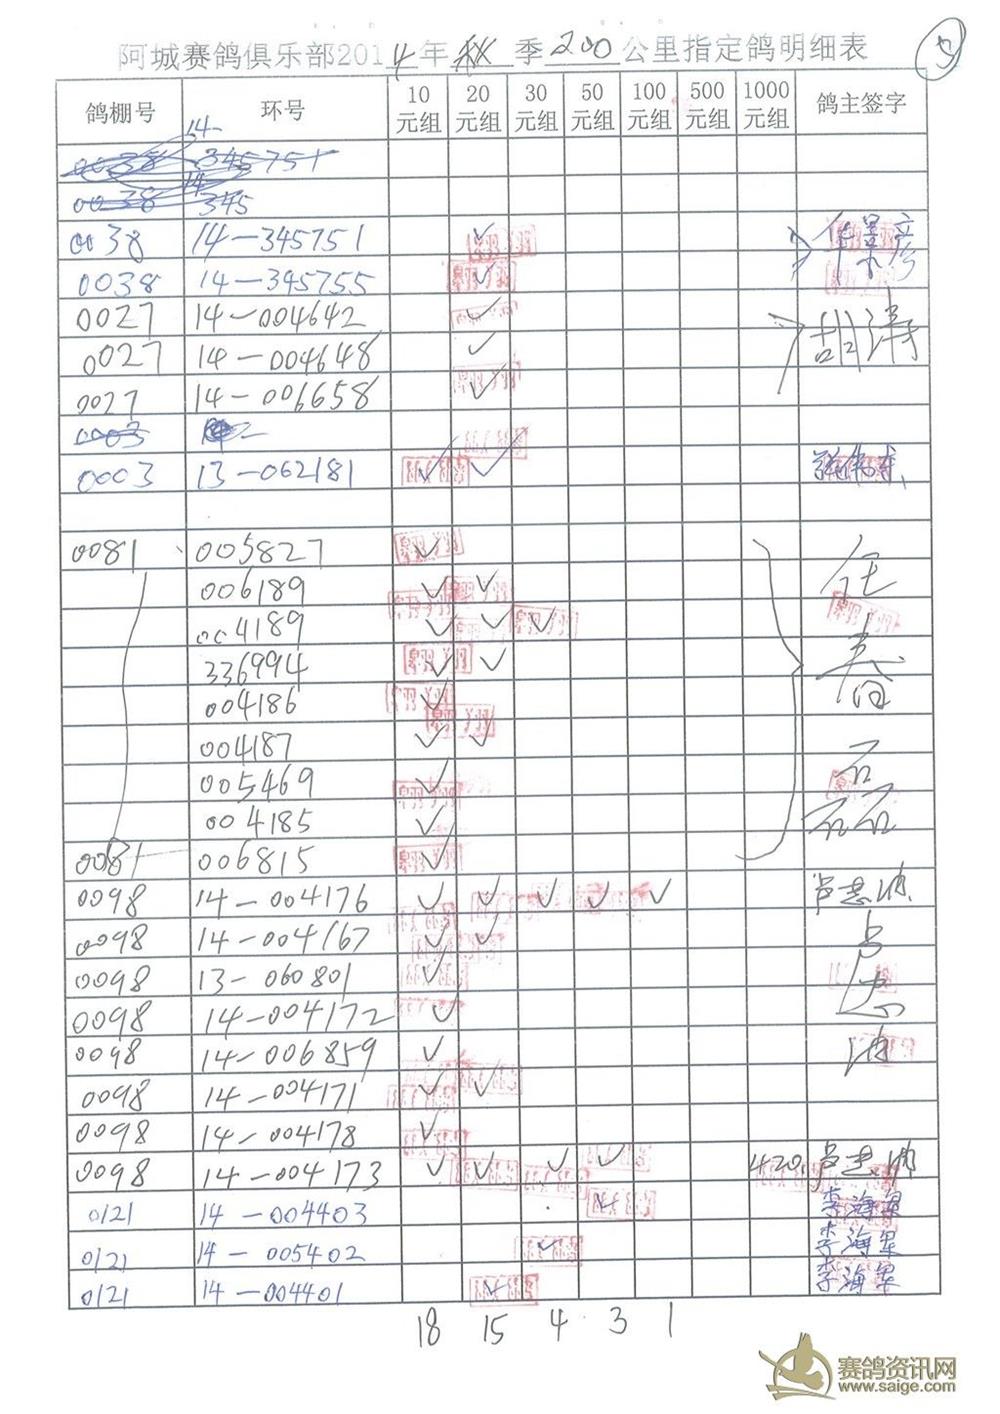 阿城赛鸽俱乐部2014年秋季200公里指定鸽明细表
鸽棚号 环号 10元组 20元组 30元组 50元组 100元组 500元组 1000元组 鸽主签字
0038 14-345751
0038 14 345
0038 14-345751 ✓
0038 14-345755 ✓
0027 14-004642 ✓ 胡涛
0027 14-004648 ✓
0027 14-006658 ✓
0003
0003 13-062181 ✓ ✓
0081 005827 ✓ 任春磊
006189 ✓ ✓
004189 ✓ ✓ ✓
336994 ✓ ✓
004186 ✓
004187 ✓ ✓
005469 ✓
004185 ✓
0081 006815 ✓
0098 14-004176 ✓ ✓ ✓ ✓ ✓ 卢志油
0098 14-004167 ✓ ✓ 卢志油
0098 13-060801 ✓
0098 14-004172 ✓
0098 14-006859 ✓
0098 14-004171 ✓ ✓
0098 14-004178 ✓
0098 14-004173 ✓ ✓ ✓ ✓ 420 卢志油
0121 14-004403 ✓ 李海军
0121 14-005402 ✓ 李海军
0121 14-004401 ✓ 李海军
18 15 4 3 1
赛鸽资讯网
www.saige.com